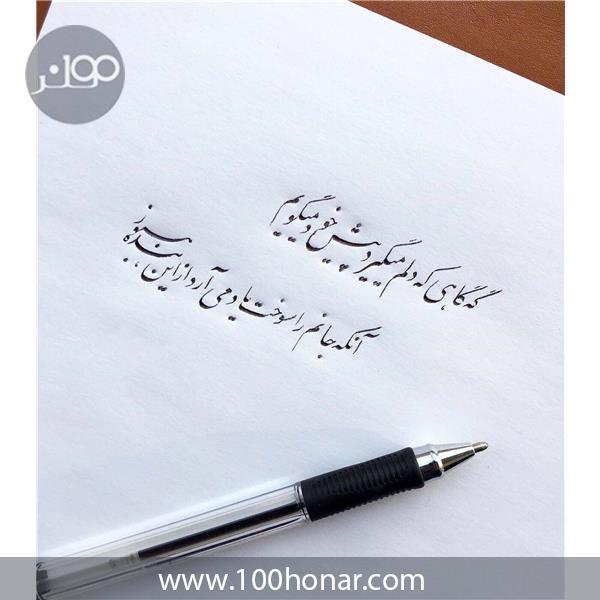 گه گاهی که دلم میگیرد پیش خود میگویم
آنکه جانم را سوخت یاد می آرد از این بنده هنوز
www.100honar.com